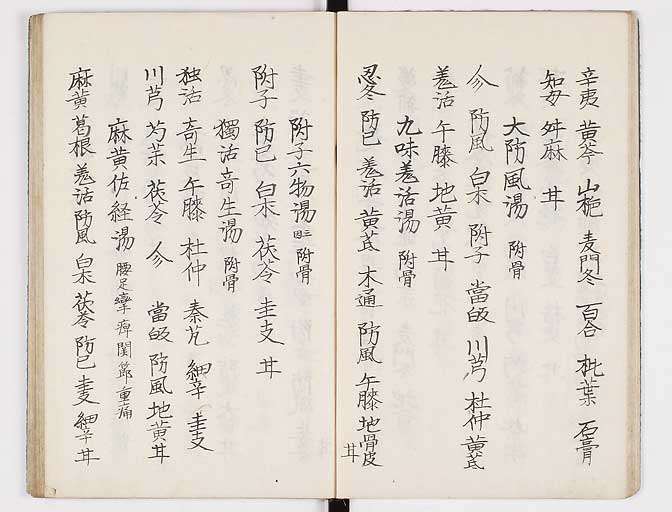 辛夷 黄芩 山梔 麦門冬 百合 枇葉 石膏
知母 舛麻 丼
大防風湯 附骨
参 防風 白朮 附子 當皈 川芎 杜仲 黄芪
羗活 午膝 地黄 丼
九味羗活湯 附骨
忍冬 防已 羗活 黄芪 木通 防風 午膝 地骨皮 丼
附子六物湯 附骨
附子 防已 白朮 茯苓 圭支 丼
獨活竒生湯 附骨
独活 竒生 午膝 杜仲 秦艽 細辛 圭支
川芎 芍薬 茯苓 参 當皈 防風 地黄 丼
麻黄佐経湯 腰足攣痺関節重痛
麻黄 葛根 羗活 防風 白朮 茯苓 防已 圭支 細辛 丼